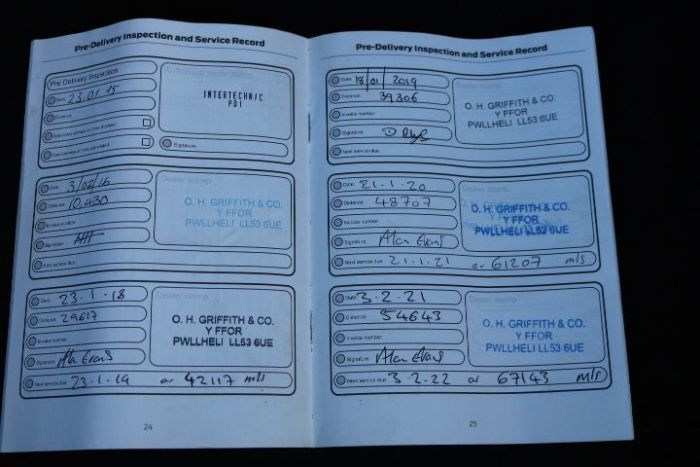 Pre-Delivery Inspection and Service Record
Pre Delivery Inspection
Date 23.01.15
Distance
Signature
INTERTECHNIC
PDI
Date 3/02/16
Distance 10,430
Invoice number
Signature
Next service due
Dealer stamp
O. H. GRIFFITH & CO.
Y FFOR
PWLLHELI LL53 6UE
Date 23-1-18
Distance 29617
Invoice number
Signature Alan Evans
Next service due 23-1-19 or 42117 mls
Dealer stamp
O. H. GRIFFITH & CO.
Y FFOR
PWLLHELI LL53 6UE
24
Pre-Delivery Inspection and Service Record
Date 18/01/2019
Distance 39306
Invoice number
Signature
Next service due
O. H. GRIFFITH & CO.
Y FFOR
PWLLHELI LL53 6UE
Date 21-1-20
Distance 48707
Invoice number
Signature Alan Evans
Next service due 21-1-21 or 61207 mls
O. H. GRIFFITH & CO.
Y FFOR
PWLLHELI LL53 6UE
Date 3-2-21
Distance 54643
Invoice number
Signature Alan Evans
Next service due 3-2-22 or 67143 mls
Dealer stamp
O. H. GRIFFITH & CO.
Y FFOR
PWLLHELI LL53 6UE
25